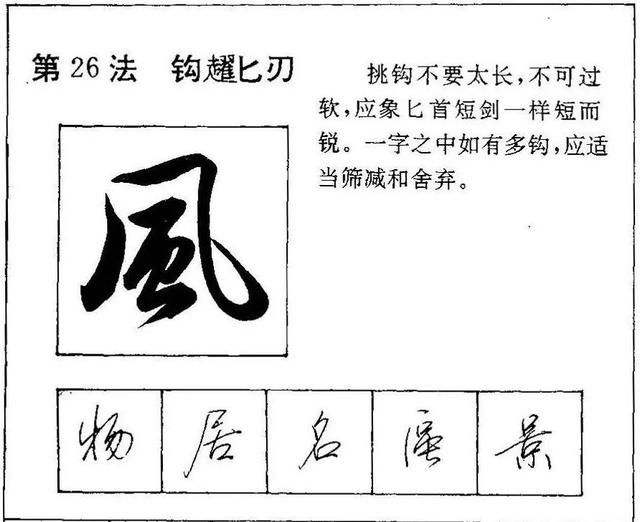 第26法 钩趯匕刃
挑钩不要太长，不可过
软，应象匕首短剑一样短而
锐。一字之中如有多钩，应适
当筛减和舍弃。
風
物 居 名 景